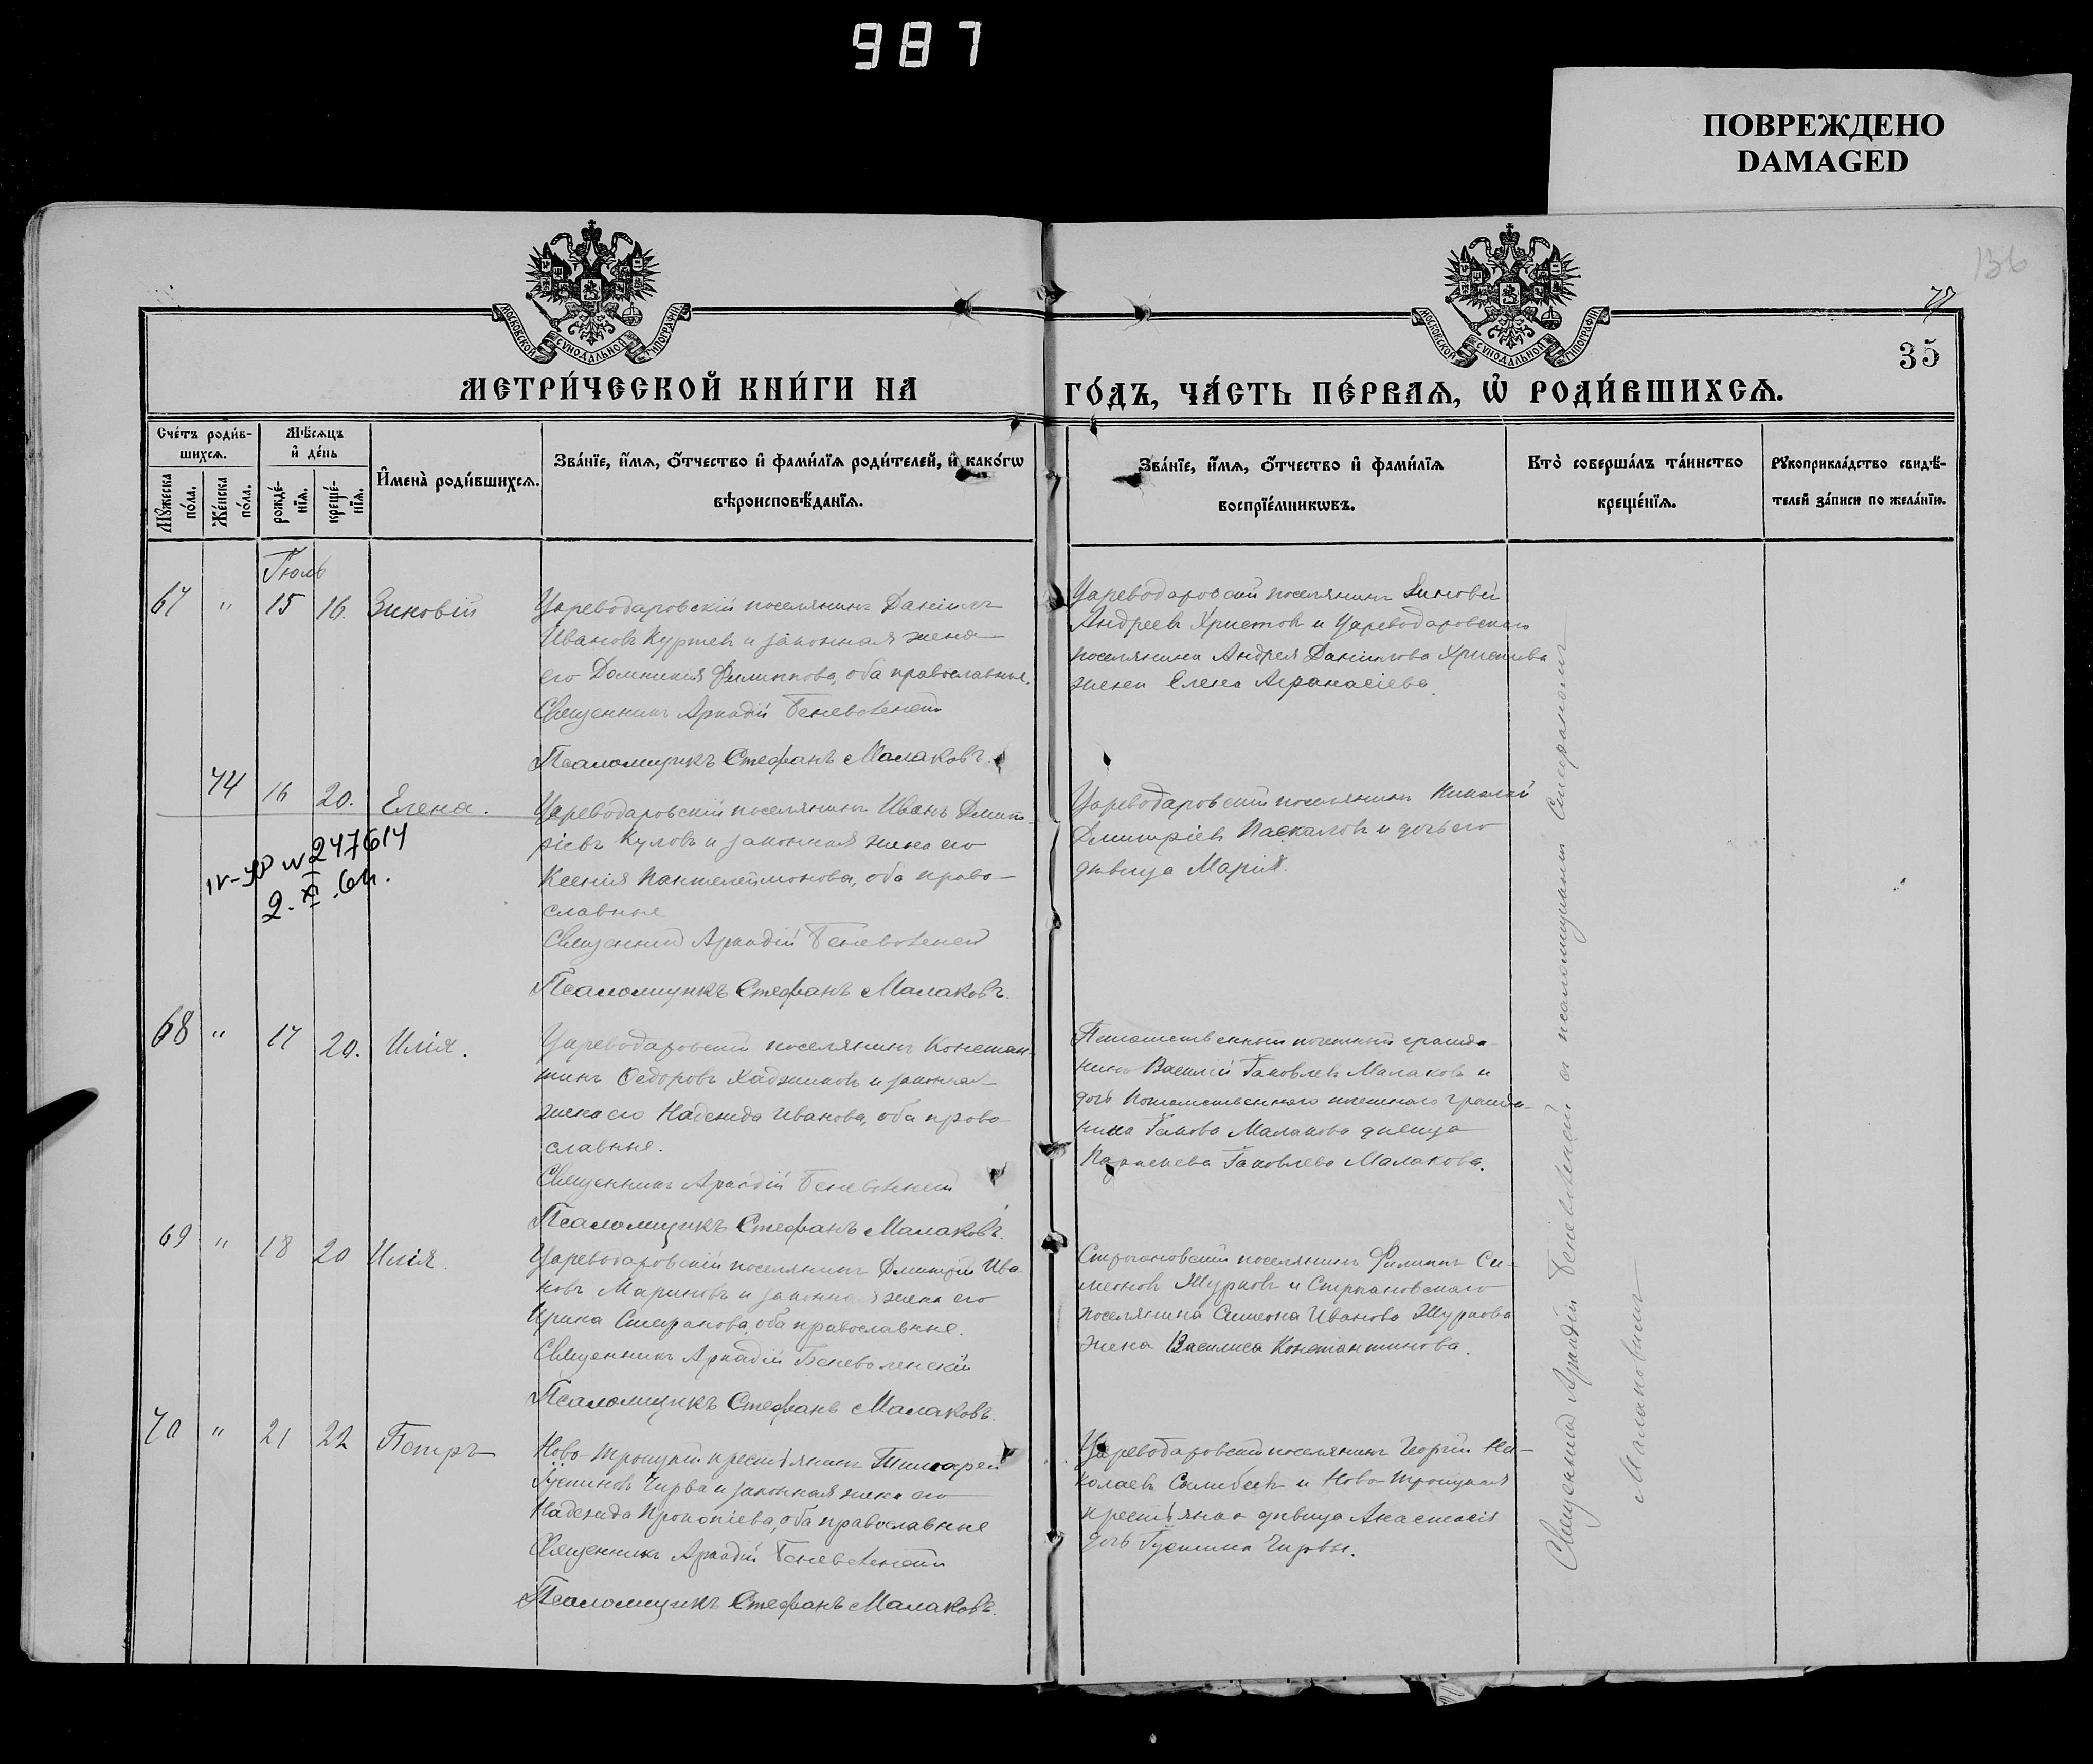 987
ПОВРЕЖДЕНО
DAMAGED
136
77
35
МОСКОВСКОЙ СѴНОДАЛЬНОЙ ТИПОГРАФІИ
МОСКОВСКОЙ СѴНОДАЛЬНОЙ ТИПОГРАФІИ
МЕТРИ́ЧЕСКОЙ КНИ́ГИ НА
ГО́ДЪ, ЧА́СТЬ ПЕ́РВАѦ, Ѡ҆ РОДИ́ВШИХСѦ.
Сче́тъ роди́в-
шихсѧ.
Мѣ́сѧцъ
и҆ де́нь
Мꙋ́жеска по́ла.
Же́нска по́ла.
рожде́-
нїѧ.
креще́-
нїѧ.
И҆мена̀ роди́вшихсѧ.
Зва́нїе, и҆́мѧ, ѻ҆́тчество и҆ фами́лїѧ роди́телей, и҆ како́гѡ
вѣроисповѣ́данїѧ.
Зва́нїе, и҆́мѧ, ѻ҆́тчество и҆ фами́лїѧ
воспрїе́мникѡвъ.
Кто̀ соверша́лъ та́инство
креще́нїѧ.
Рꙋкоприкла́дство свидѣ́-
телей за́писи по жела́нїю.
Іюль
67 " 15 16. Зиновій
Цареводаровскій поселянинъ Даніилъ
Ивановъ Куртевъ и законная жена
его Домникія Филиппова, оба православные.
Священникъ Аркадій Беневоленскій
Псаломщикъ Стефанъ Малаковъ.
Цареводаровскій поселянинъ Зиновій
Андреевъ Христовъ и Цареводаровскаго
поселянина Андрея Даніилова Христова
жена Елена Афанасіева.
74 16 20. Елена.
IV-ЯР № 247614
2.XI.64.
Цареводаровскій поселянинъ Иванъ Дмит-
ріевъ Куловъ и законная жена его
Ксенія Пантелеймонова, оба право-
славные
Священникъ Аркадій Беневоленскій
Псаломщикъ Стефанъ Малаковъ.
Цареводаровскій поселянинъ Николай
Дмитріевъ Паскаловъ и дочь его
дѣвица Марія.
68 " 17 20. Илія.
Цареводаровскій поселянинъ Констан-
тинъ Ѳедоровъ Хаджиновъ и законная
жена его Надежда Иванова, оба право-
славные.
Священникъ Аркадій Беневоленскій
Псаломщикъ Стефанъ Малаковъ.
Потомственный почетный гражда-
нинъ Василій Іаковлевъ Малаковъ и
дочь потомственнаго почетнаго гражда-
нина Іакова Малакова дѣвица
Іаковлева Малакова.
69 " 18 20 Илія.
Цареводаровскій поселянинъ Дмитрій Ива-
новъ Мариновъ и законная жена его
Ирина Стефанова, оба православные.
Священникъ Аркадій Беневоленскій
Псаломщикъ Стефанъ Малаковъ.
Строгановскій поселянинъ Филиппъ Си-
меоновъ Журковъ и Строгановскаго
поселянина Симеона Иванова Журкова
жена Василиса Константинова.
70 " 21 22 Петръ
Ново-Троицкій крестьянинъ
Іустиновъ Чирва и законная жена его
Надежда Прокопіева, оба православные
Священникъ Аркадій Беневоленскій
Псаломщикъ Стефанъ Малаковъ.
Цареводаровскій поселянинъ Георгій Ни-
колаевъ и Ново-Троицкая
крестьянка дѣвица Анастасія
дочь Іустина Чирвы.
Священникъ Аркадій Беневоленскій съ псаломщикомъ Стефаномъ
Малаковымъ